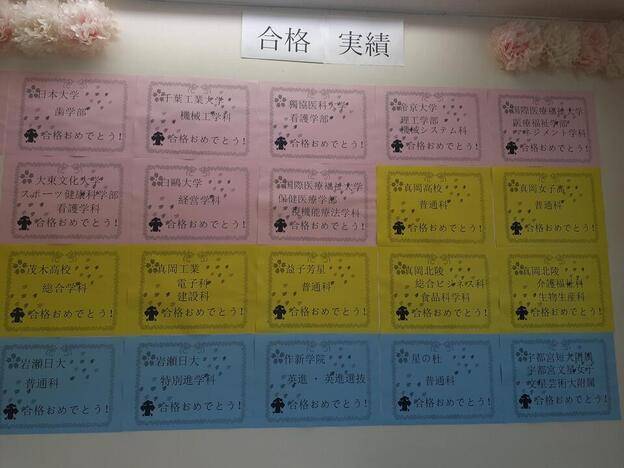 合格 実績
日本大学
歯学部
合格おめでとう!
千葉工業大学
機械工学科
合格おめでとう!
獨協医科大学
看護学部
合格おめでとう!
帝京大学
理工学部
機械システム科
合格おめでとう!
国際医療福祉大学
医療福祉学部
マネジメント学科
合格おめでとう!
大東文化大学
スポーツ健康科学部
看護学科
合格おめでとう!
白鴎大学
経営学科
合格おめでとう!
国際医療福祉大学
保健医療学部
視機能療法学科
合格おめでとう!
真岡高校
普通科
合格おめでとう!
真岡女子高
普通科
合格おめでとう!
茂木高校
総合学科
合格おめでとう!
真岡工業
電子科
建設科
合格おめでとう!
益子芳星
普通科
合格おめでとう!
真岡北陵
総合ビジネス科
食品科学科
合格おめでとう!
真岡北陵
介護福祉科
生物生産科
合格おめでとう!
岩瀬日大
普通科
合格おめでとう!
岩瀬日大
特別進学科
合格おめでとう!
作新学院
英進・英進選抜
合格おめでとう!
星の杜
普通科
合格おめでとう!
宇都宮短大附属
宇都宮文星女子
文星芸術大附属
合格おめでとう!